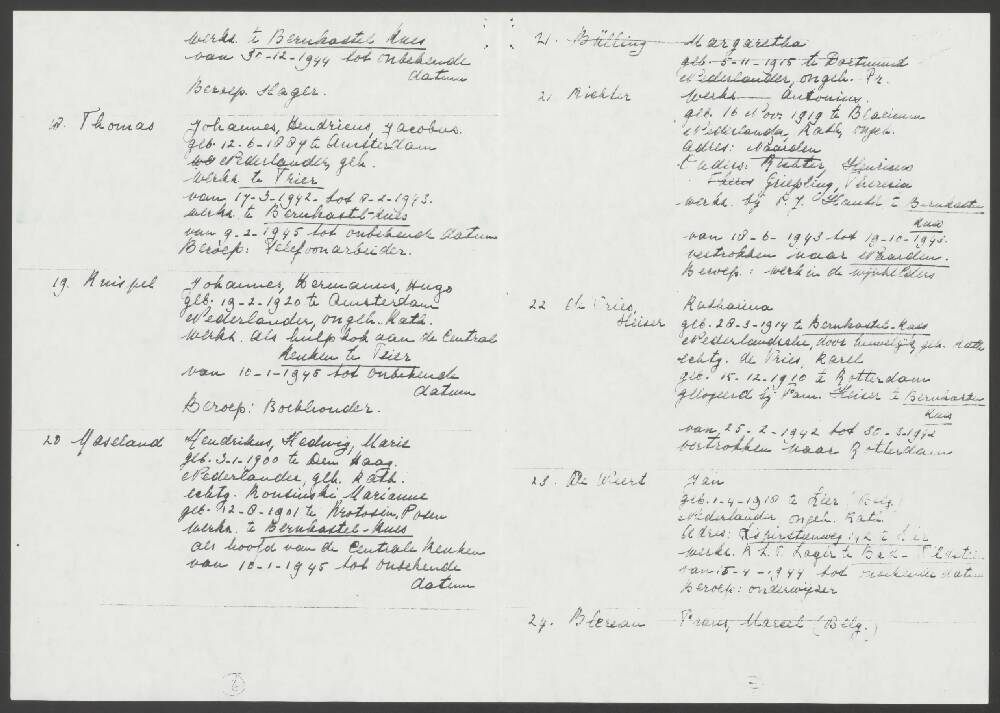 werkz. te Bernkastel Kues
van 30-12-1944 tot onbekende
datum
Beroep. Slager.
18. Thomas Johannes, Hendricus, Jacobus.
geb. 12-6-1887 te Amsterdam
Nederlander, geh.
werkz. te Trier
van 17-3-1942- tot 8-2-1943.
werkz. te Bernkastel-Kues
van 9-2-1945 tot onbekende datum
Beroep: Telefoonarbeider.
19. Knispel Johannes, Hermannus, Hugo
geb. 19-2-1920 te Amsterdam
Nederlander, ongeh. Kath.
werkz. als hulpkok aan de Central
Keuken te Trier
van 10-1-1945 tot onbekende
datum
Beroep: Boekhouder.
20 Maseland Hendrikus, Hedwig, Marie
geb. 3-1-1900 te Den Haag.
Nederlander, geh. Kath.
echtg. Ronsinski Marianne
geb. 12-8-1901 te Krotosin, Posen
werkz. te Bernkastel-Kues
als hoofd van de Centrale Keuken
van 10-1-1945 tot onbekende
datum
6
21. Bülling Margaretha
geb. 5-11-1915 te Dortmund
Nederlander, ongeh. Pr.
21 Richter werkz. Antonius.
geb. 16 Nov. 1919 te Blaricum
Nederlander, Kath, ongeh.
adres: Naarden
Ouders: Richter, Henricus
Griepling, Theresia
werkz. bij P. J. Hauth te Bernkastel
Kues
van 18-6-1943 tot 19-10-1945.
vertrokken naar Naarden.
Beroep: werk in de wijnkelders
22 de Vries, Katharina
Heiser geb. 28-3-1914 te Bernkastel-Kues
Nederlandsche, door huwelijk, geh. Kath
echtg. de Vries, Karel
geb. 15-12-1910 te Rotterdam
gelogeerd bij Fam. Heiser te Bernkastel
Kues
van, 25-2-1942 tot 30-3-1942
vertrokken naar Rotterdam
23. De Weert Jan
geb. 1-4-1918 te Lier (Belg.)
Nederlander, ongeh. Kath.
Adres: 142 te Lier
werkz. Lager te
van 15-4-1944 tot onbekende datum
Beroep: onderwijzer
24. Blereau Frans, Marcel (Belg.)
7